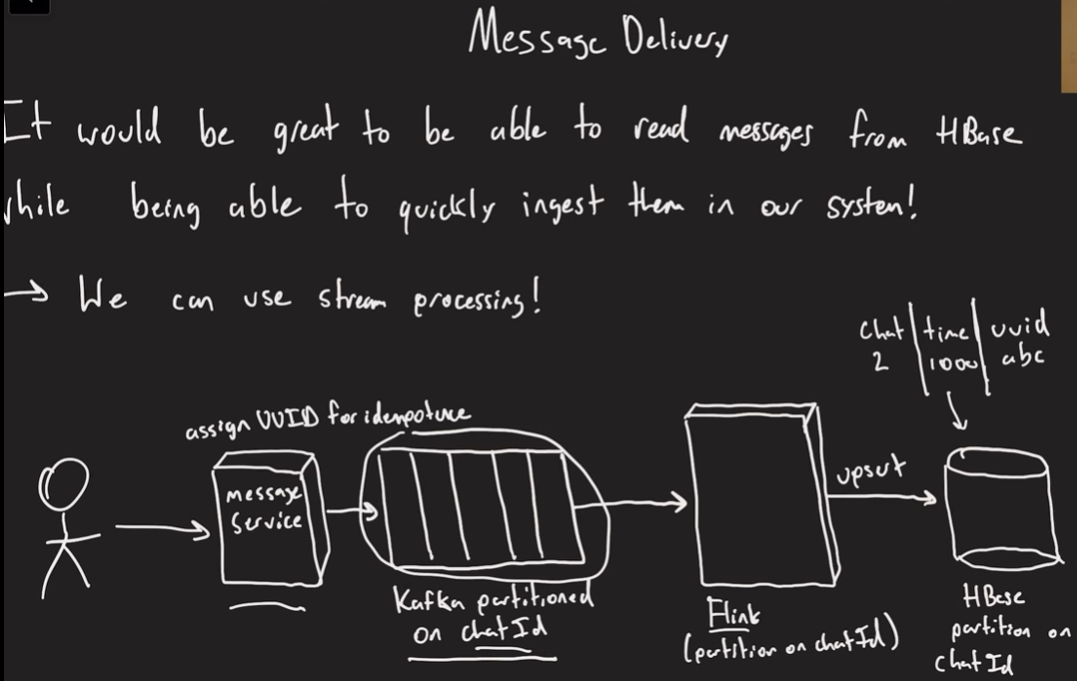 Message Delivery
It would be great to be able to read messages from HBase
while being able to quickly ingest them in our system!
→ We can use stream processing!
chat | time | uuid
2 | 1000 | abc
assign UUID for idempotence
message
Service
upsert
Kafka partitioned
on chatId
Flink
(partition on chatId)
HBase
partition on
chatId